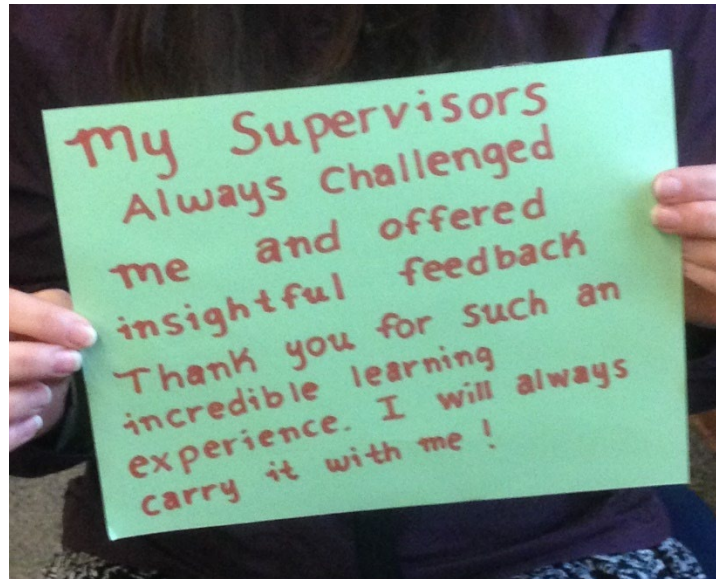 My Supervisors
Always Challenged
me and offered
insightful feedback
Thank you for such an
incredible learning
experience. I will always
carry it with me!